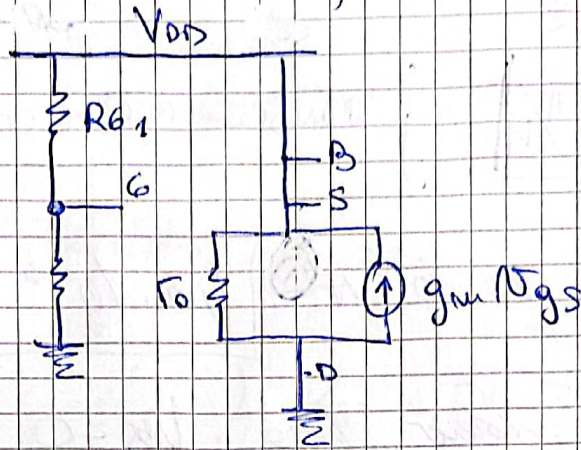 VDD
RG1
G
B
S
ro
gm Vgs
D